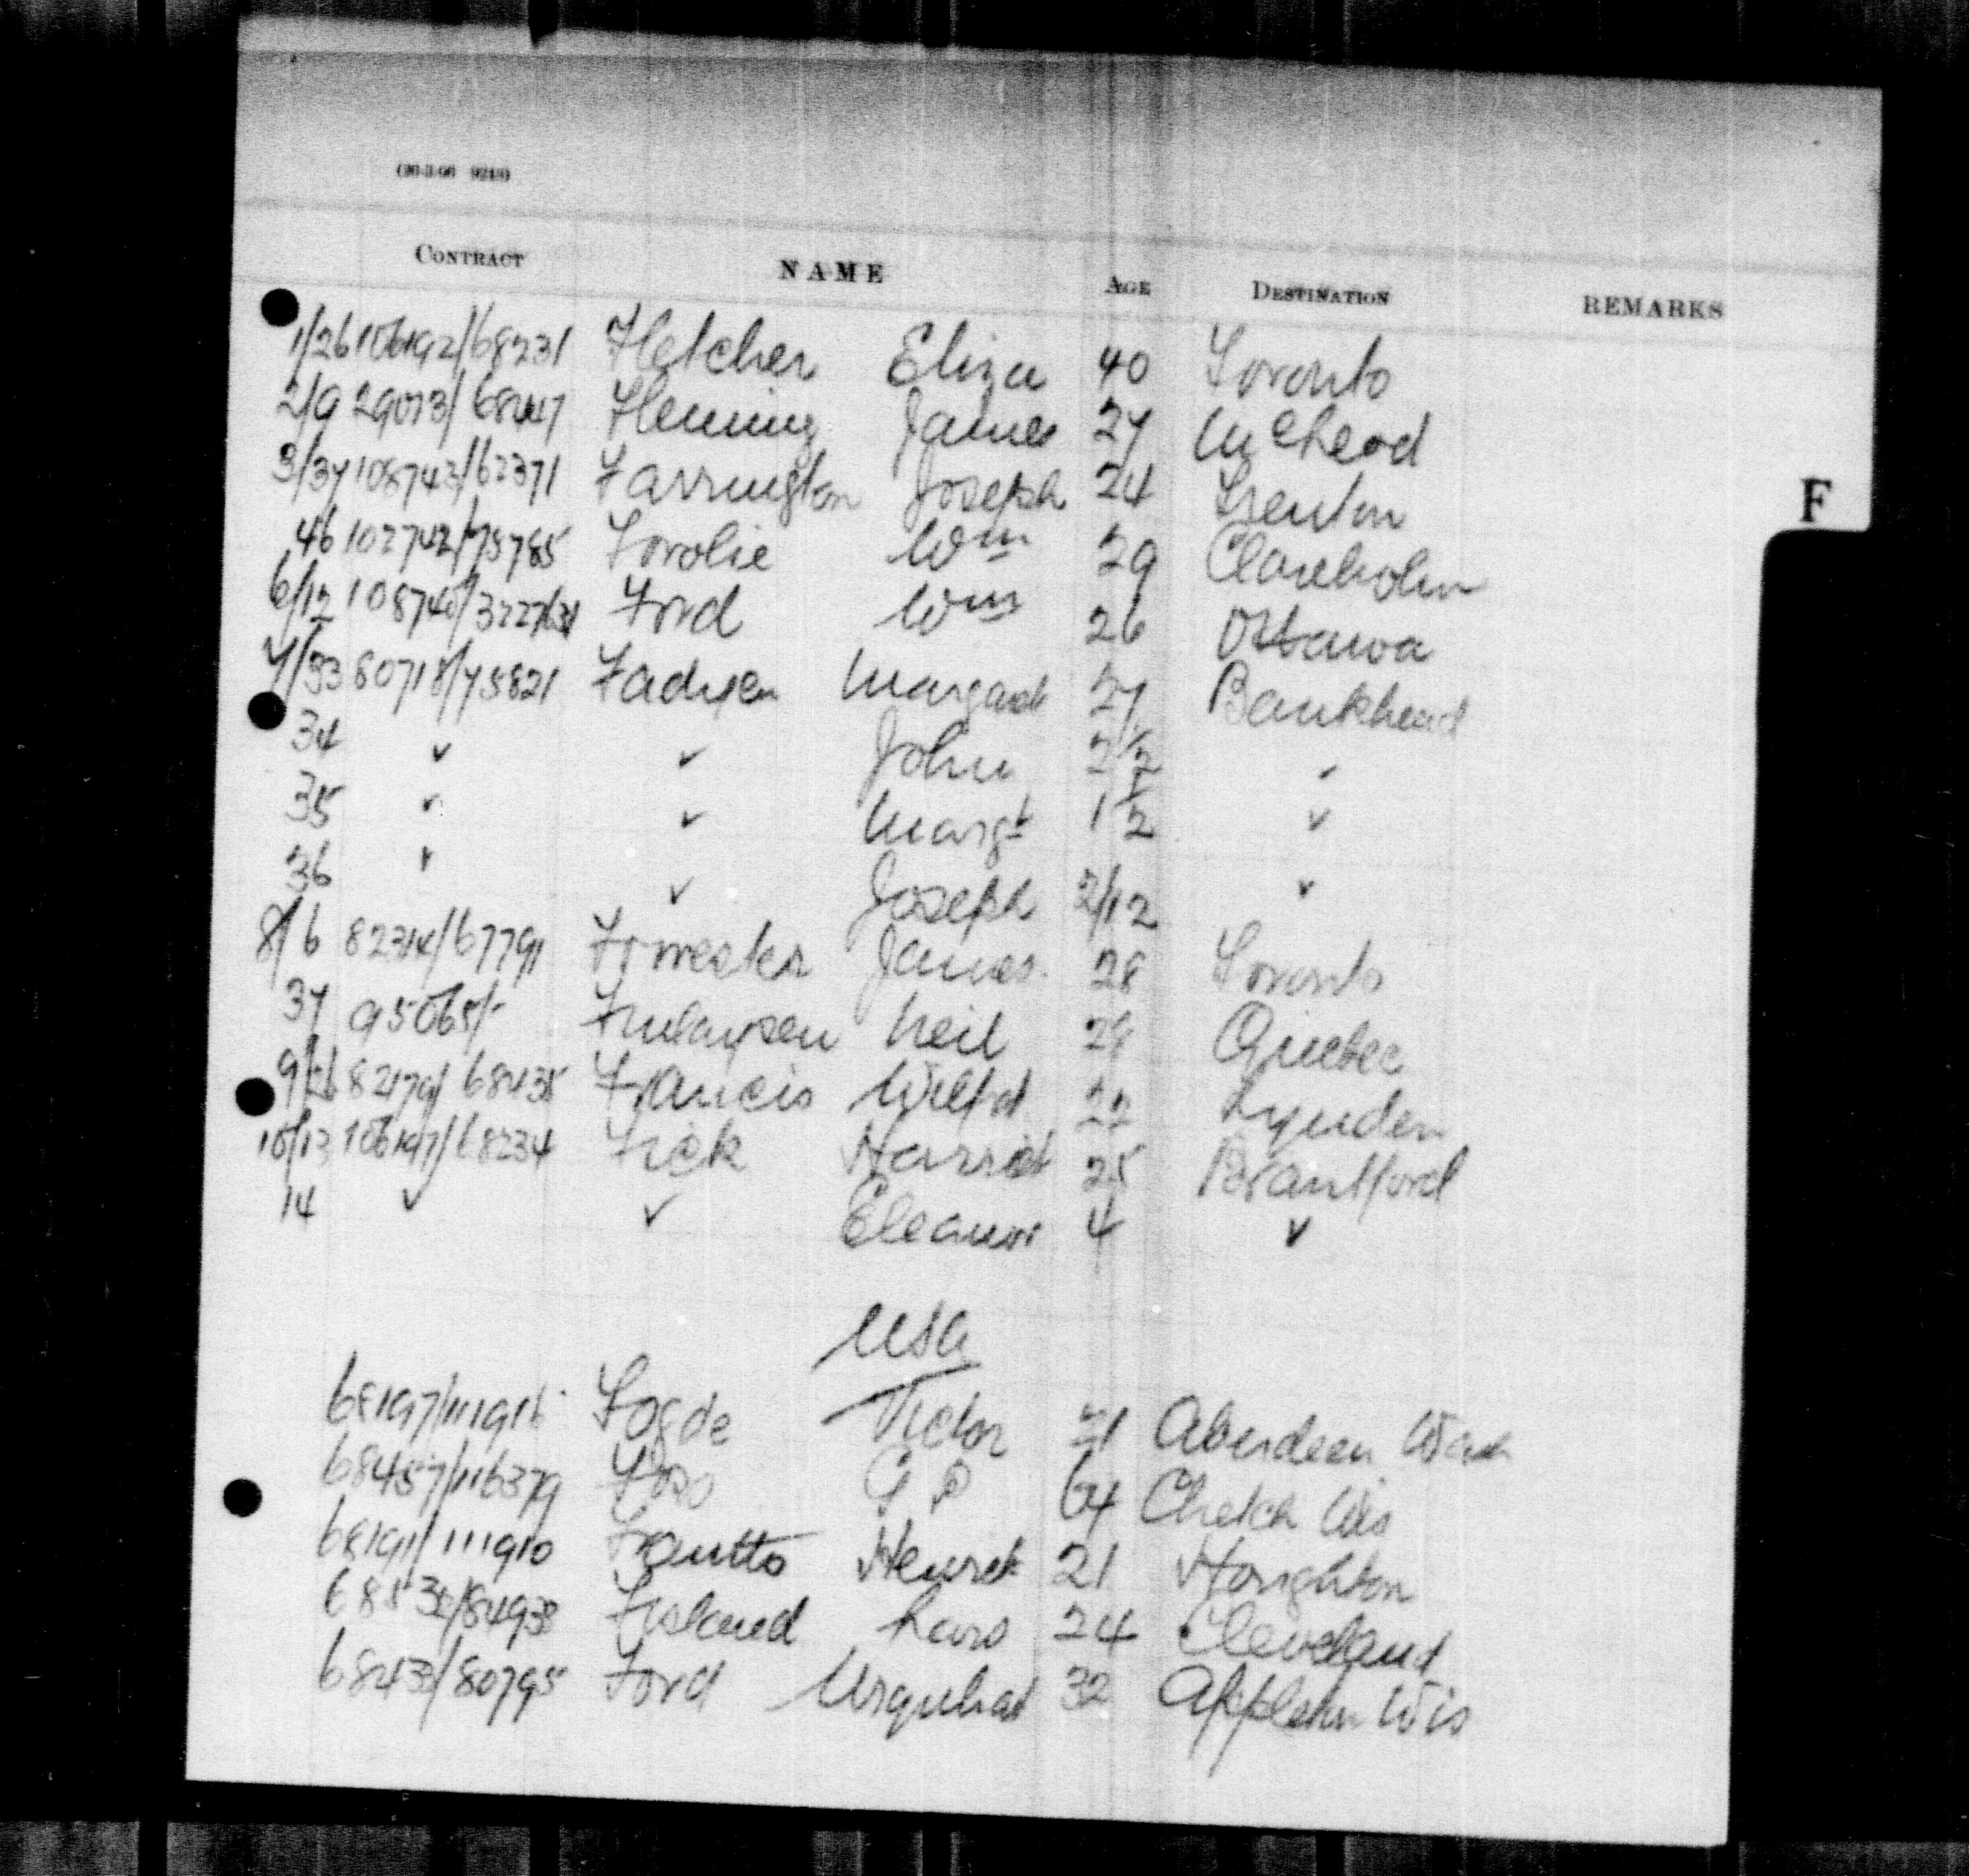 CONTRACT NAME AGE DESTINATION REMARKS
1/26 106192/68231 Fletcher Eliza 40 Toronto
2/9 29073/68447 Fleming James 27 McLeod
3/37 108743/62371 Farrington Joseph 24 Trenton
F
46 102742/75785 Wm 29 Claresholm
6/12 Ford Wm 26 Ottawa
7/33 80718/75821 Fadyen Margaret 27 Bankhead
34 ✓ ✓ John 2½ ✓
35 ✓ ✓ Margt 1½ ✓
36 ✓ ✓ Joseph 2/12 ✓
8/6 82314/67791 Forrester James 28 Toronto
37 95065/- Finlaysen Neil Quebec
9/26 82179/68435 Francis Wilfrd 22 Lynden
10/13 106197/68234 Fick Harriet 25 Brantford
14 ✓ ✓ Eleanor 4 ✓
USA
68197/111916 Fogde Victor 21 Aberdeen Wash
68457/116379 Foss G P 64 Chetek Wis
68191/111910 21 Houghton
Fisland Lars 24 Cleveland
68433/80795 Ford Urquhart 32 Appleton Wis